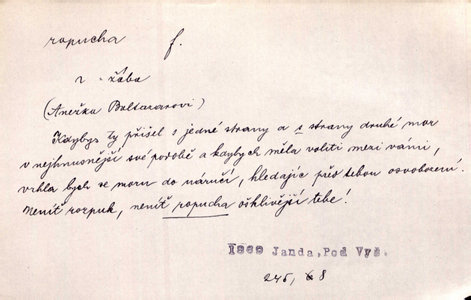 ropucha f.
v. žába
(Anežka Baltazarovi)
Kdybys ty přišel s jedné strany a s strany druhé mor
v nejhnusnější své podobě a kdybych měla voliti mezi vámi,
vrhla bych se moru do náručí, hledajíc před tebou osvobození.
Neníť rozpuk, neníť ropucha ošklivější tebe!
1909 Janda, Pod Vyš.
245, 8